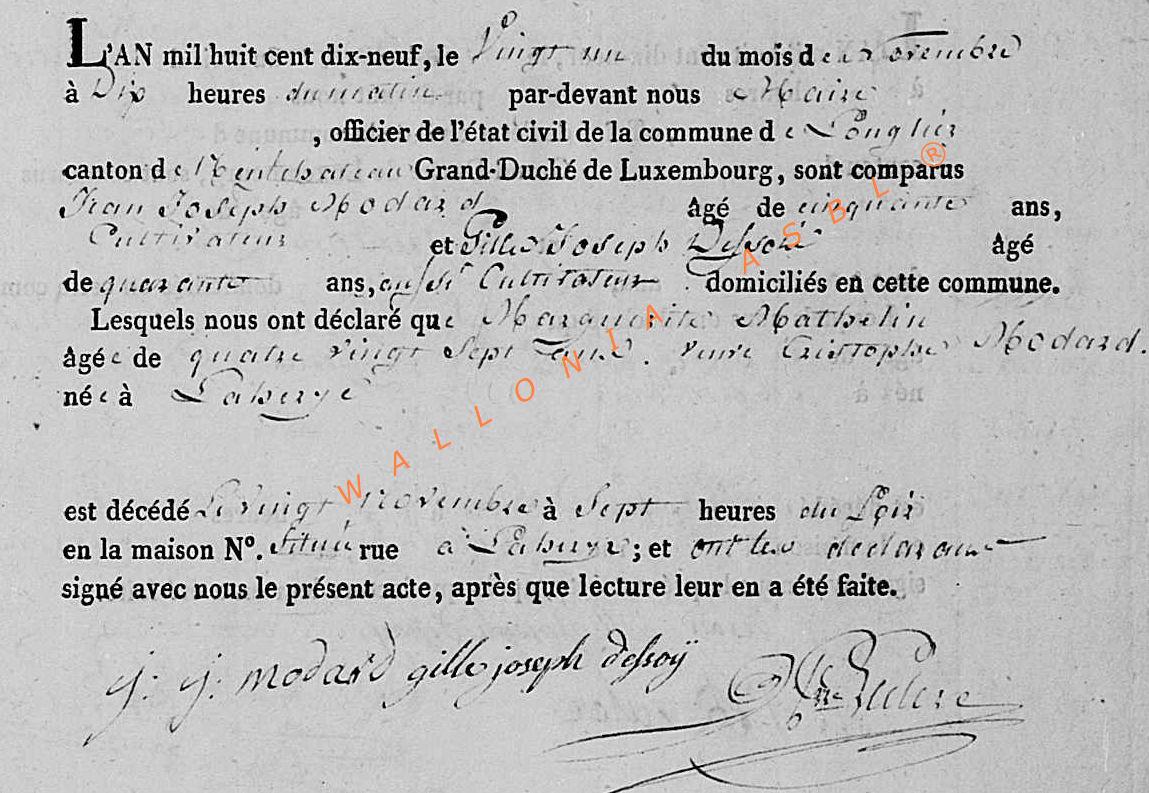 L'AN mil huit cent dix-neuf, le Vingt un du mois de Novembre
à Dix heures du matin par-devant nous Maire
, officier de l'état civil de la commune de Longlier
canton de Neufchateau Grand-Duché de Luxembourg, sont comparus
Jean Joseph Modard âgé de cinquante ans,
Cultivateur et Gille Joseph Dessoÿ âgé
de quarante ans, aussi Cultivateur domiciliés en cette commune.
Lesquels nous ont déclaré que Marguerite Mathelin
âgée de quatre vingt Sept ans. veuve Cristophe Modard.
née à Laherye
est décédé Le vingt novembre à Sept heures du Soir
en la maison N°. Située rue à Laherye ; et ont les declarans
signé avec nous le présent acte, après que lecture leur en a été faite.
j: j: modard gille joseph dessoÿ
WALLONIA ASBL ®